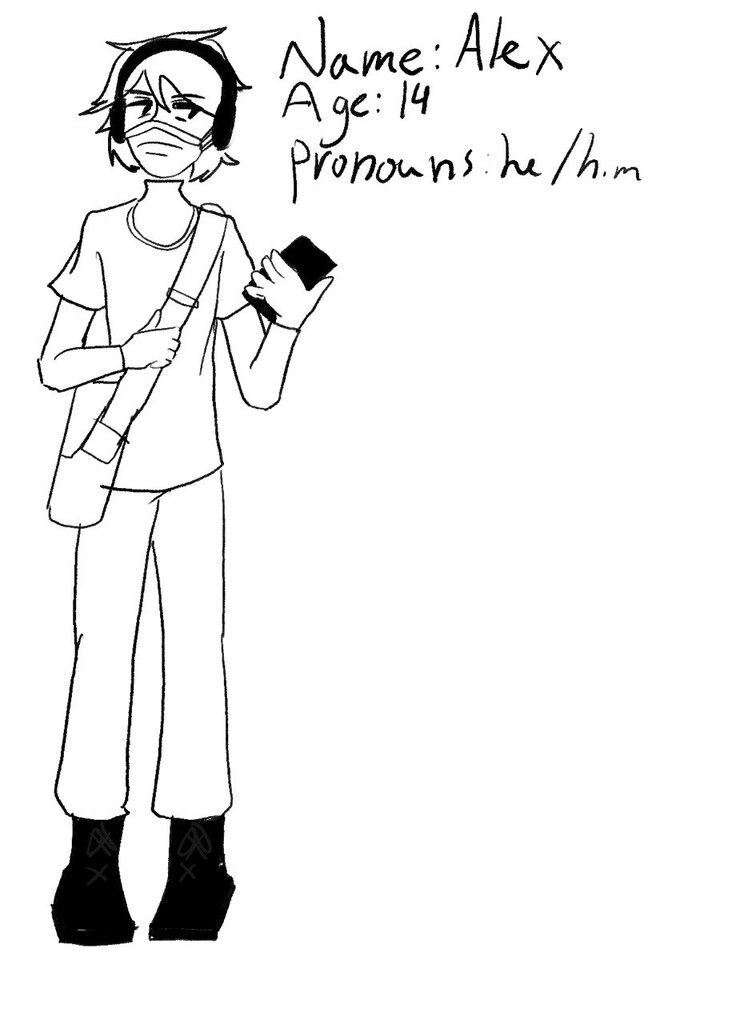 Name: Alex
Age: 14
pronouns: he/him